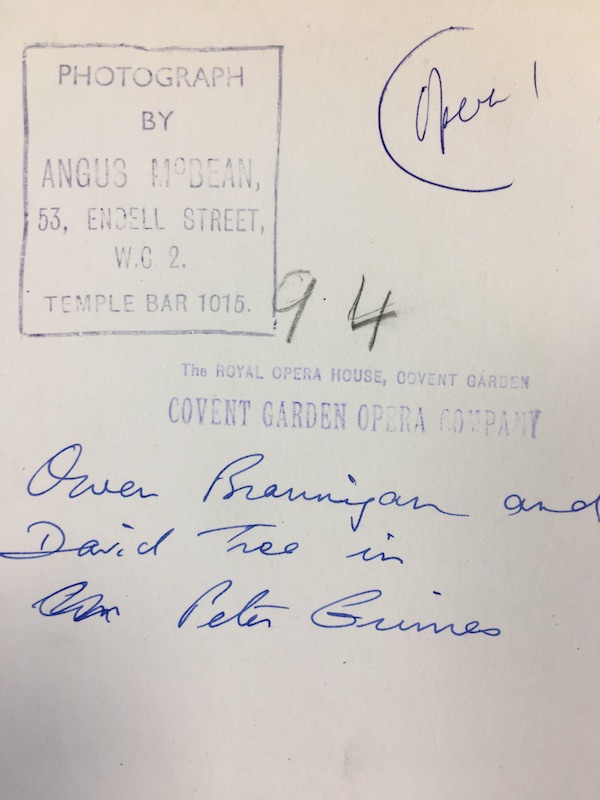 PHOTOGRAPH
BY
ANGUS McBEAN,
53, ENDELL STREET,
W.C 2.
TEMPLE BAR 1015.
Opera 1
94
The ROYAL OPERA HOUSE, COVENT GARDEN
COVENT GARDEN OPERA COMPANY
Owen Brannigan and
David Tree in
Peter Grimes